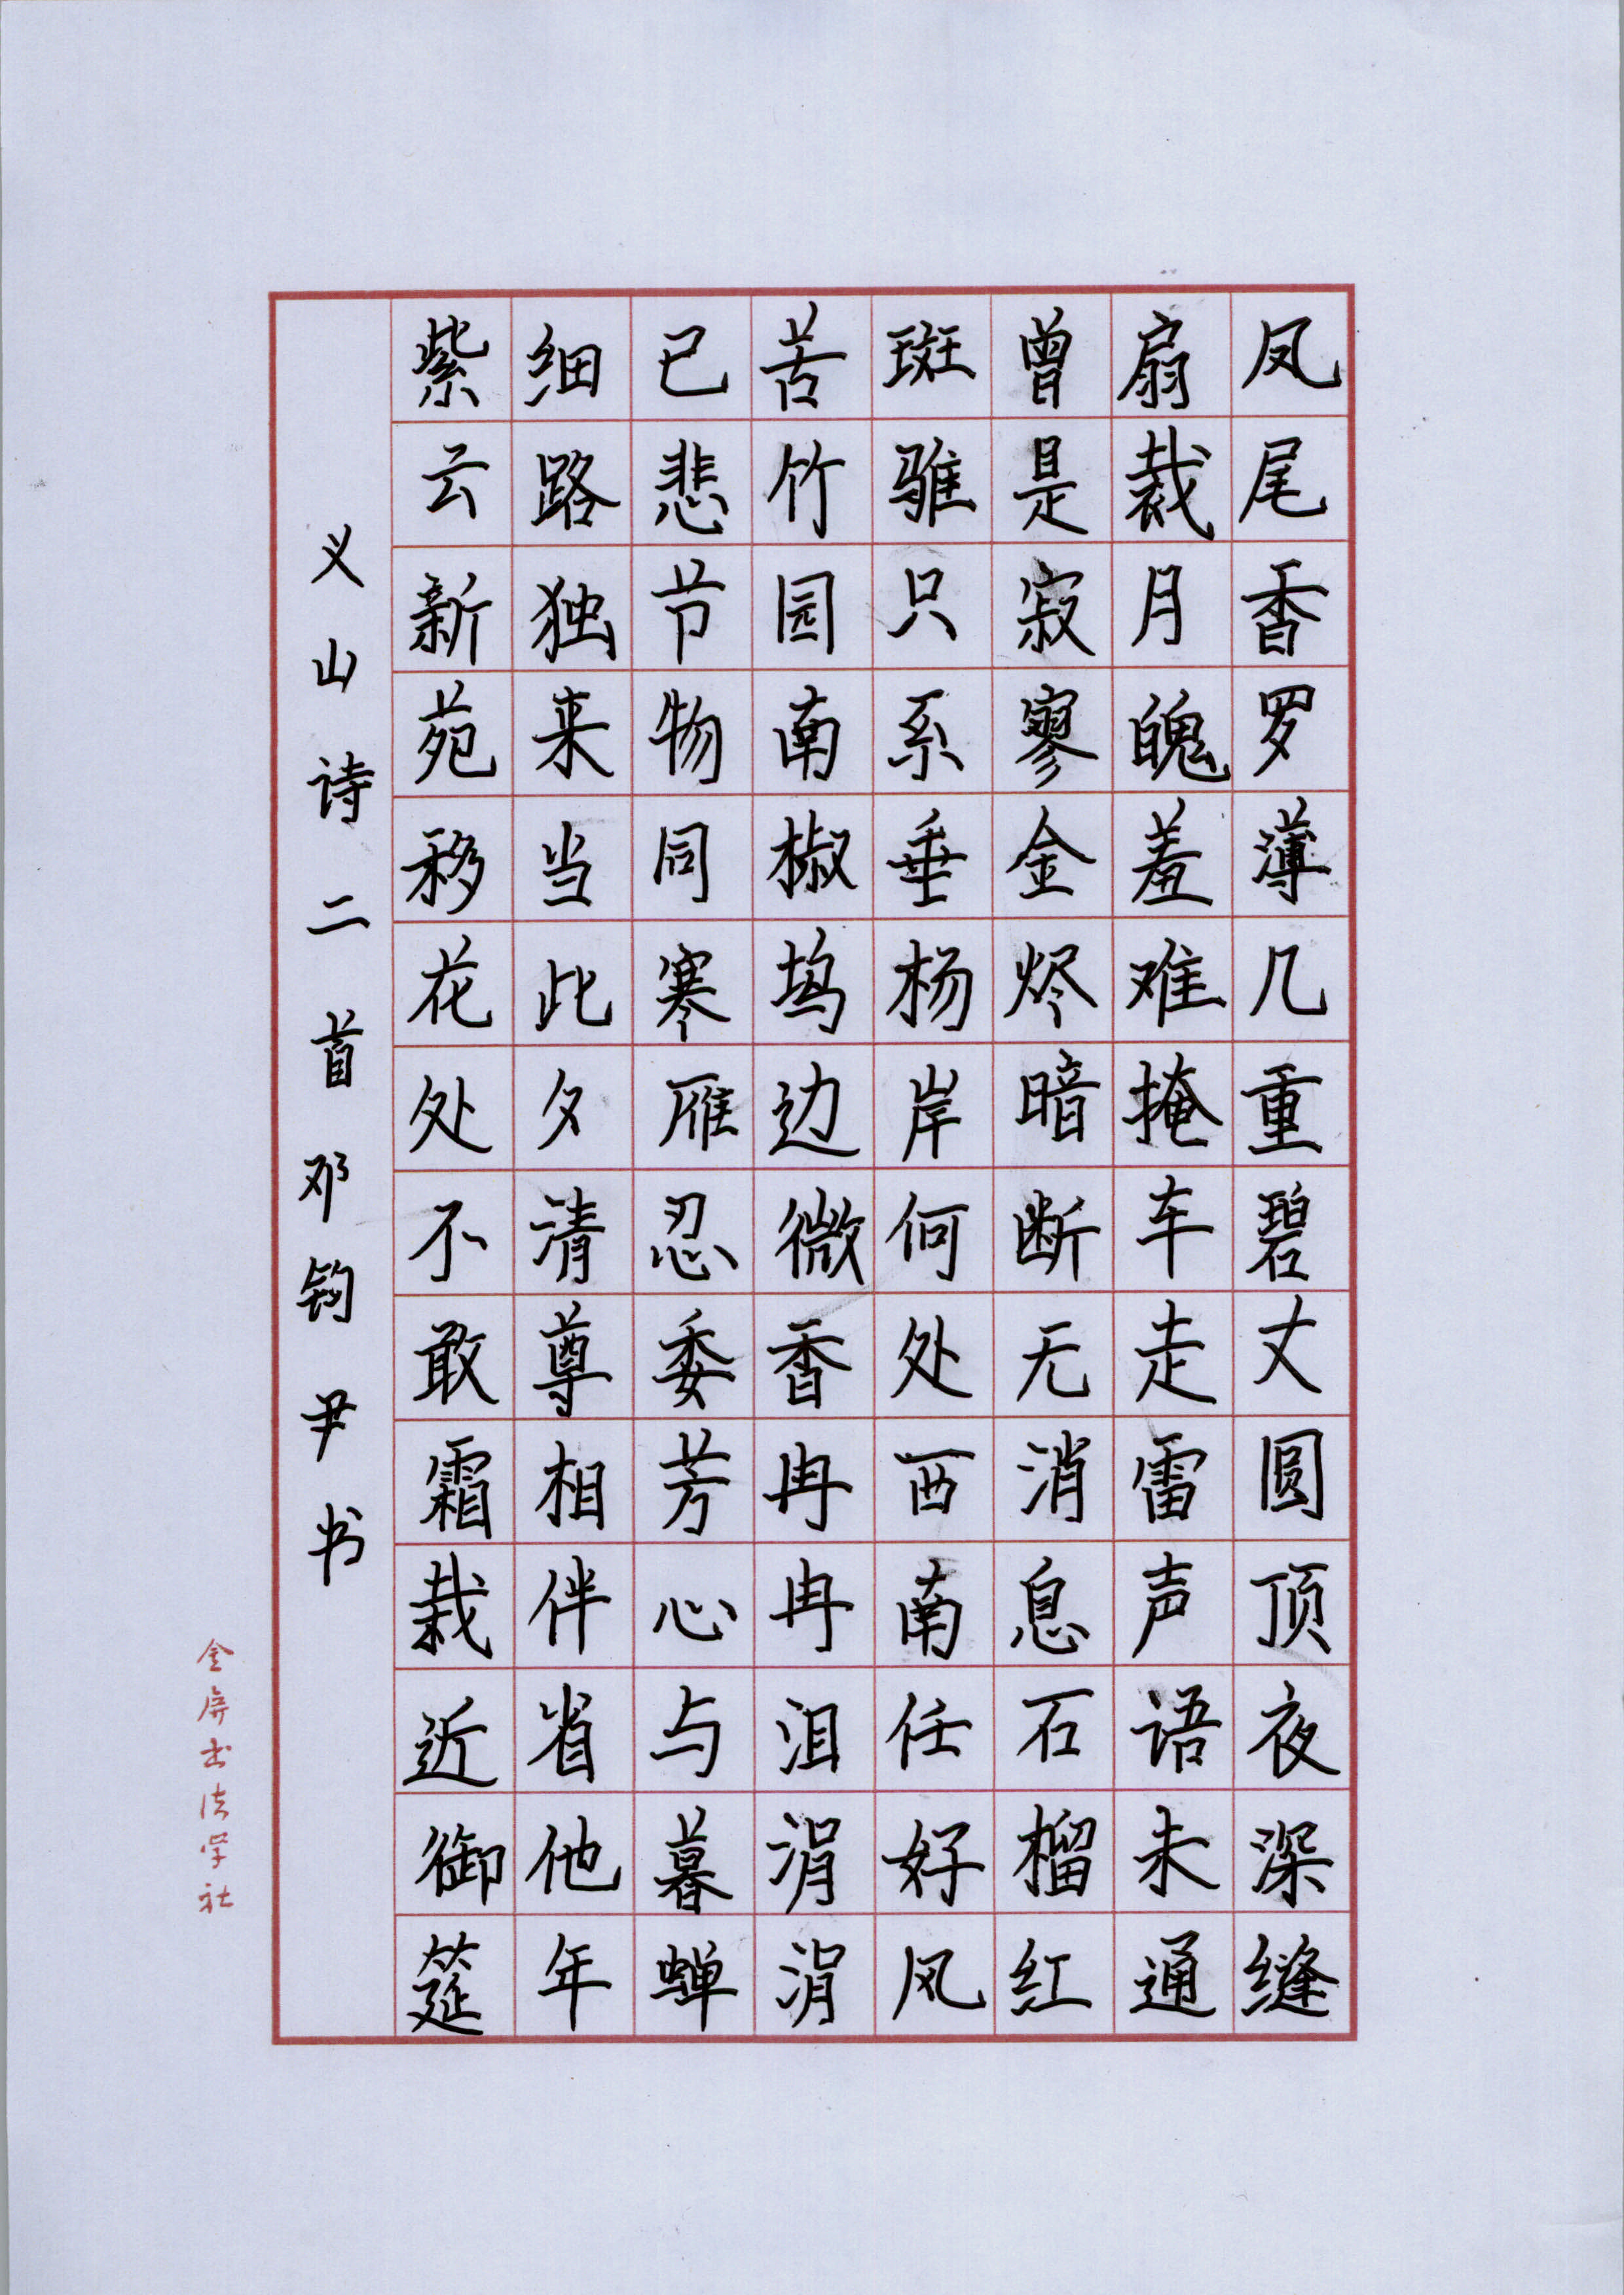 凤尾香罗薄几重碧丈圆顶夜深缝
扇裁月魄羞难掩车走雷声语未通
曾是寂寥金烬暗断无消息石榴红
斑骓只系垂杨岸何处西南任好风
苦竹园南椒坞边微香冉冉泪涓涓
已悲节物同寒雁忍委芳心与暮蝉
细路独来当此夕清尊相伴省他年
紫云新苑移花处不敢霜栽近御筵
义山诗二首邓钧尹书
金屏书法学社